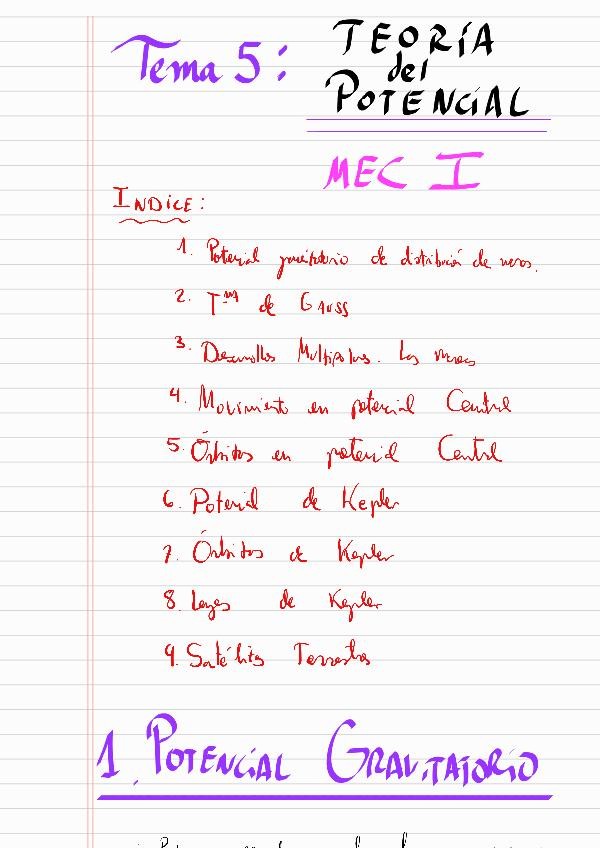 Tema 5: TEORÍA
del
POTENCIAL
MEC I
INDICE:
1. Potencial gravitatorio de distribución de masas.
2. Tma de GAUSS
3. Desarrollos Multipolares. Las mareas
4. Movimiento en potencial Central
5. Órbitas en potencial Central
6. Potencial de Kepler
7. Órbitas de Kepler
8. Leyes de Kepler
9. Satélites Terrestres
1. POTENCIAL GRAVITATORIO